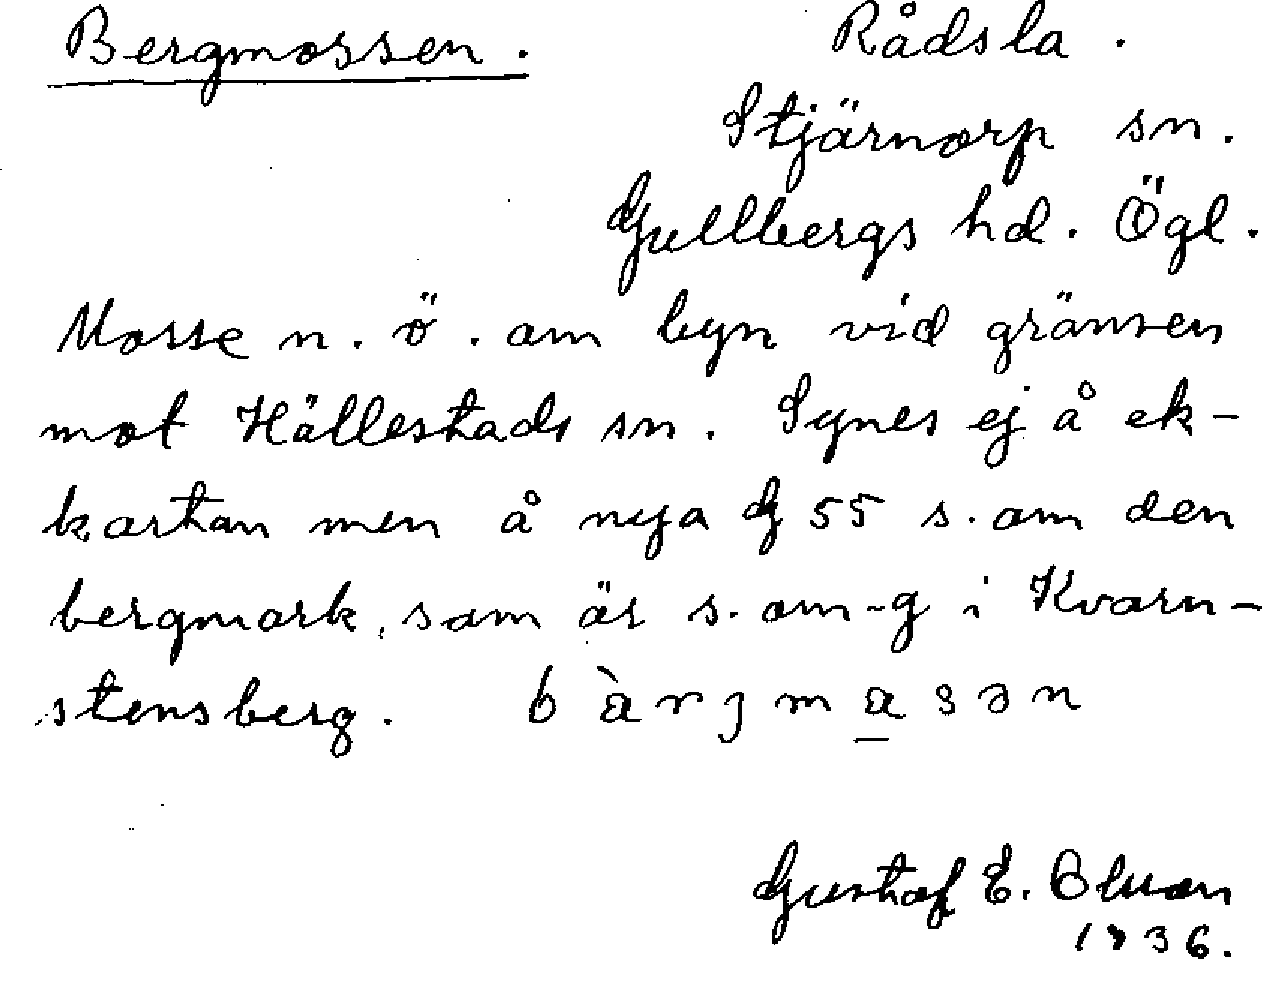 Bergmossen. Rådsla.
Stjärnorp sn.
Gullbergs hd. Ögl.
Mosse n. ö. om byn vid gränsen
mot Hällestads sn. Synes ej å ek-
kartan men å nya G 55 s. om den
bergmark, som är s. om -g i Kvarn-
stensberg. bàrjmasən
Gustaf E. Olsson
1936.